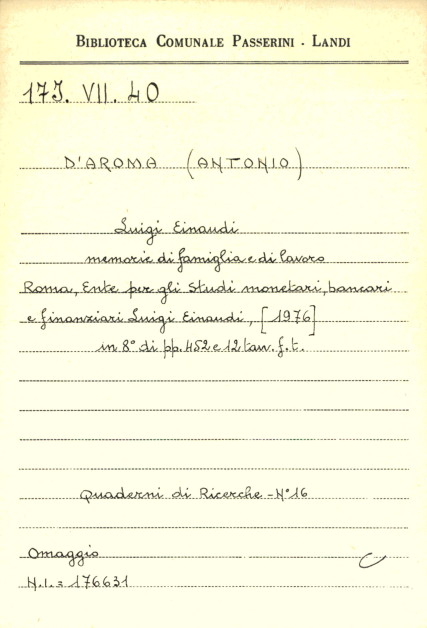 BIBLIOTECA COMUNALE PASSERINI - LANDI
17J. VII. 40
D'AROMA (ANTONIO)
Luigi Einaudi
memorie di famiglia e di lavoro
Roma, Ente per gli Studi monetari, bancari
e finanziari Luigi Einaudi, [1976]
in 8° di pp. 452 e 12 tav. f.t.
Quaderni di Ricerche - N° 16
Omaggio C
N.I. = 176631